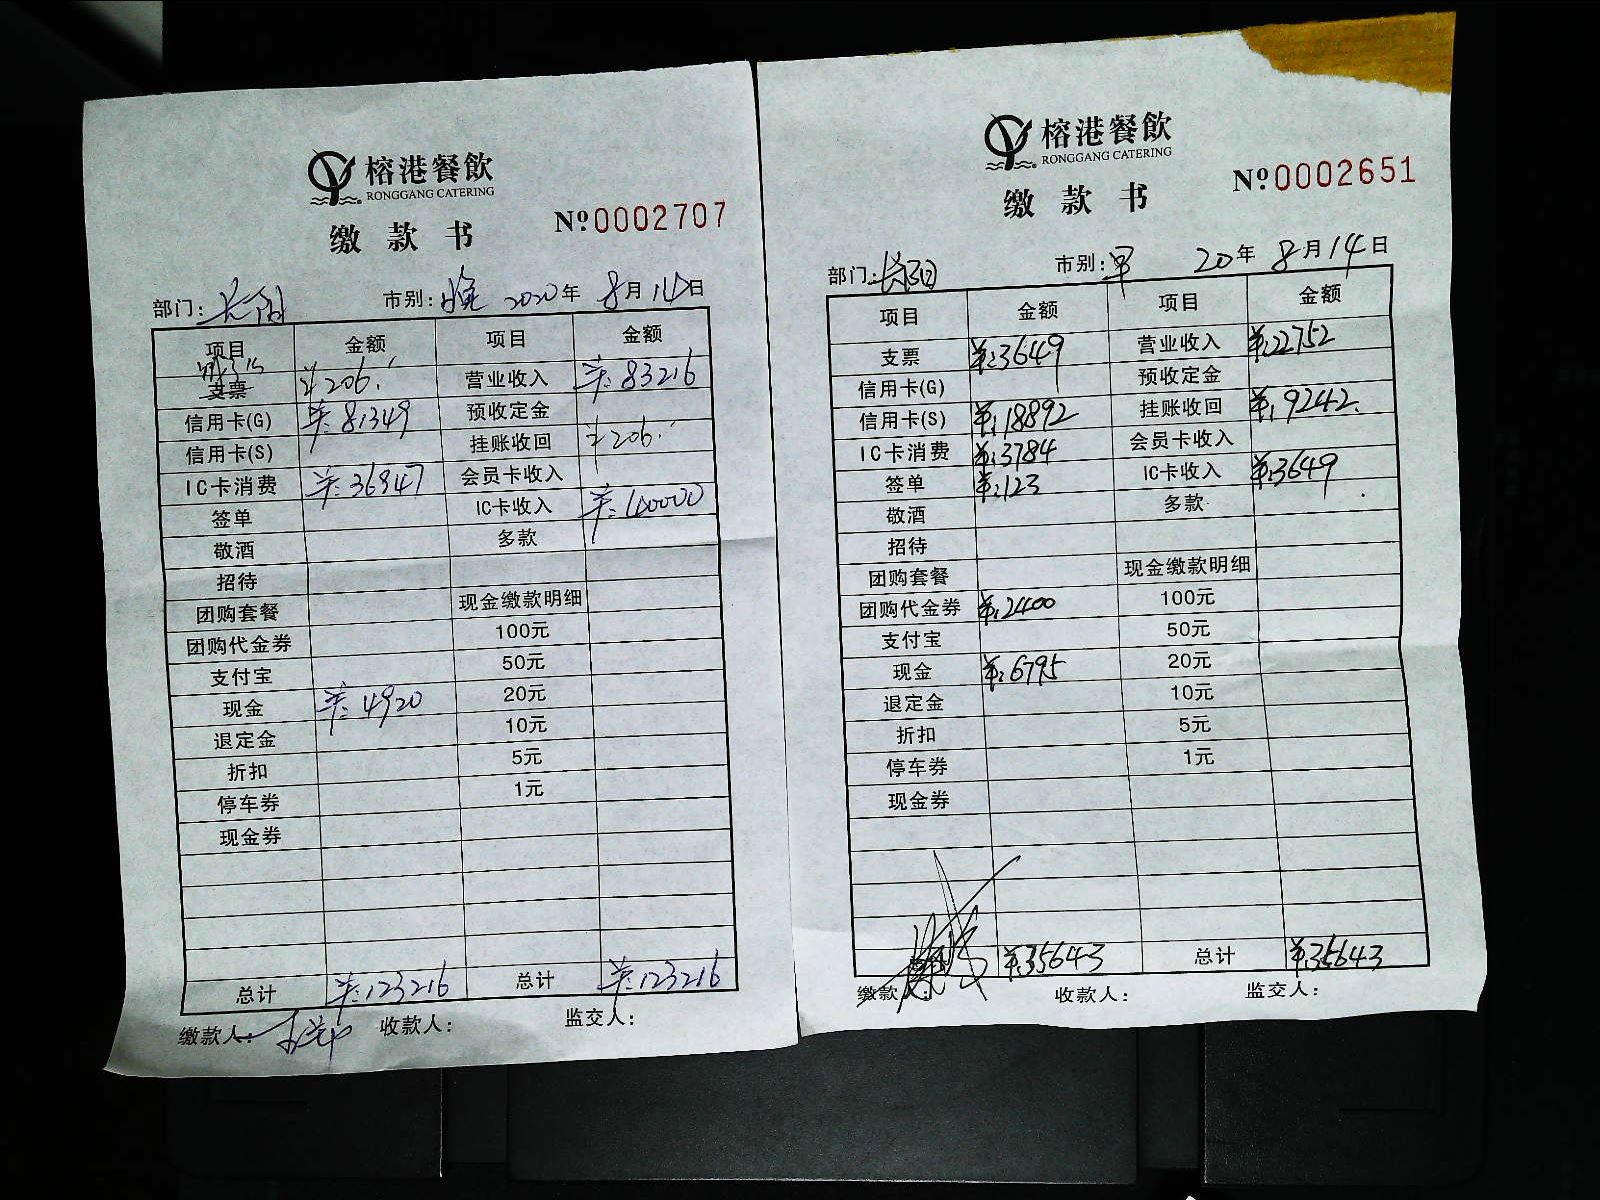 榕港餐飲
RONGGANG CATERING
缴款书
№0002707
部门: 市别:晚 2020年 8月14日
项目 金额 项目 金额
支票 ¥206. 营业收入 ¥:83216
信用卡(G) ¥:81349 预收定金
信用卡(S) 挂账收回 ¥206.
IC卡消费 ¥:36947 会员卡收入
签单 IC卡收入 ¥:40000
敬酒 多款
招待
团购套餐 现金缴款明细
团购代金券 100元
支付宝 50元
现金 ¥:4920 20元
退定金 10元
折扣 5元
停车券 1元
现金券
总计 ¥:123216 总计 ¥:123216
缴款人: 收款人: 监交人:
榕港餐飲
RONGGANG CATERING
缴款书
№0002651
部门: 市别:早 20年 8月14日
项目 金额 项目 金额
支票 ¥:3649 营业收入 ¥:22752
信用卡(G) 预收定金
信用卡(S) ¥:18892 挂账收回 ¥:9242.
IC卡消费 ¥:3784 会员卡收入
签单 ¥:123 IC卡收入 ¥:3649
敬酒 多款
招待
团购套餐 现金缴款明细
团购代金券 ¥:2400 100元
支付宝 50元
现金 ¥:6795 20元
退定金 10元
折扣 5元
停车券 1元
现金券
¥:35643 总计 ¥:35643
缴款人: 收款人: 监交人: